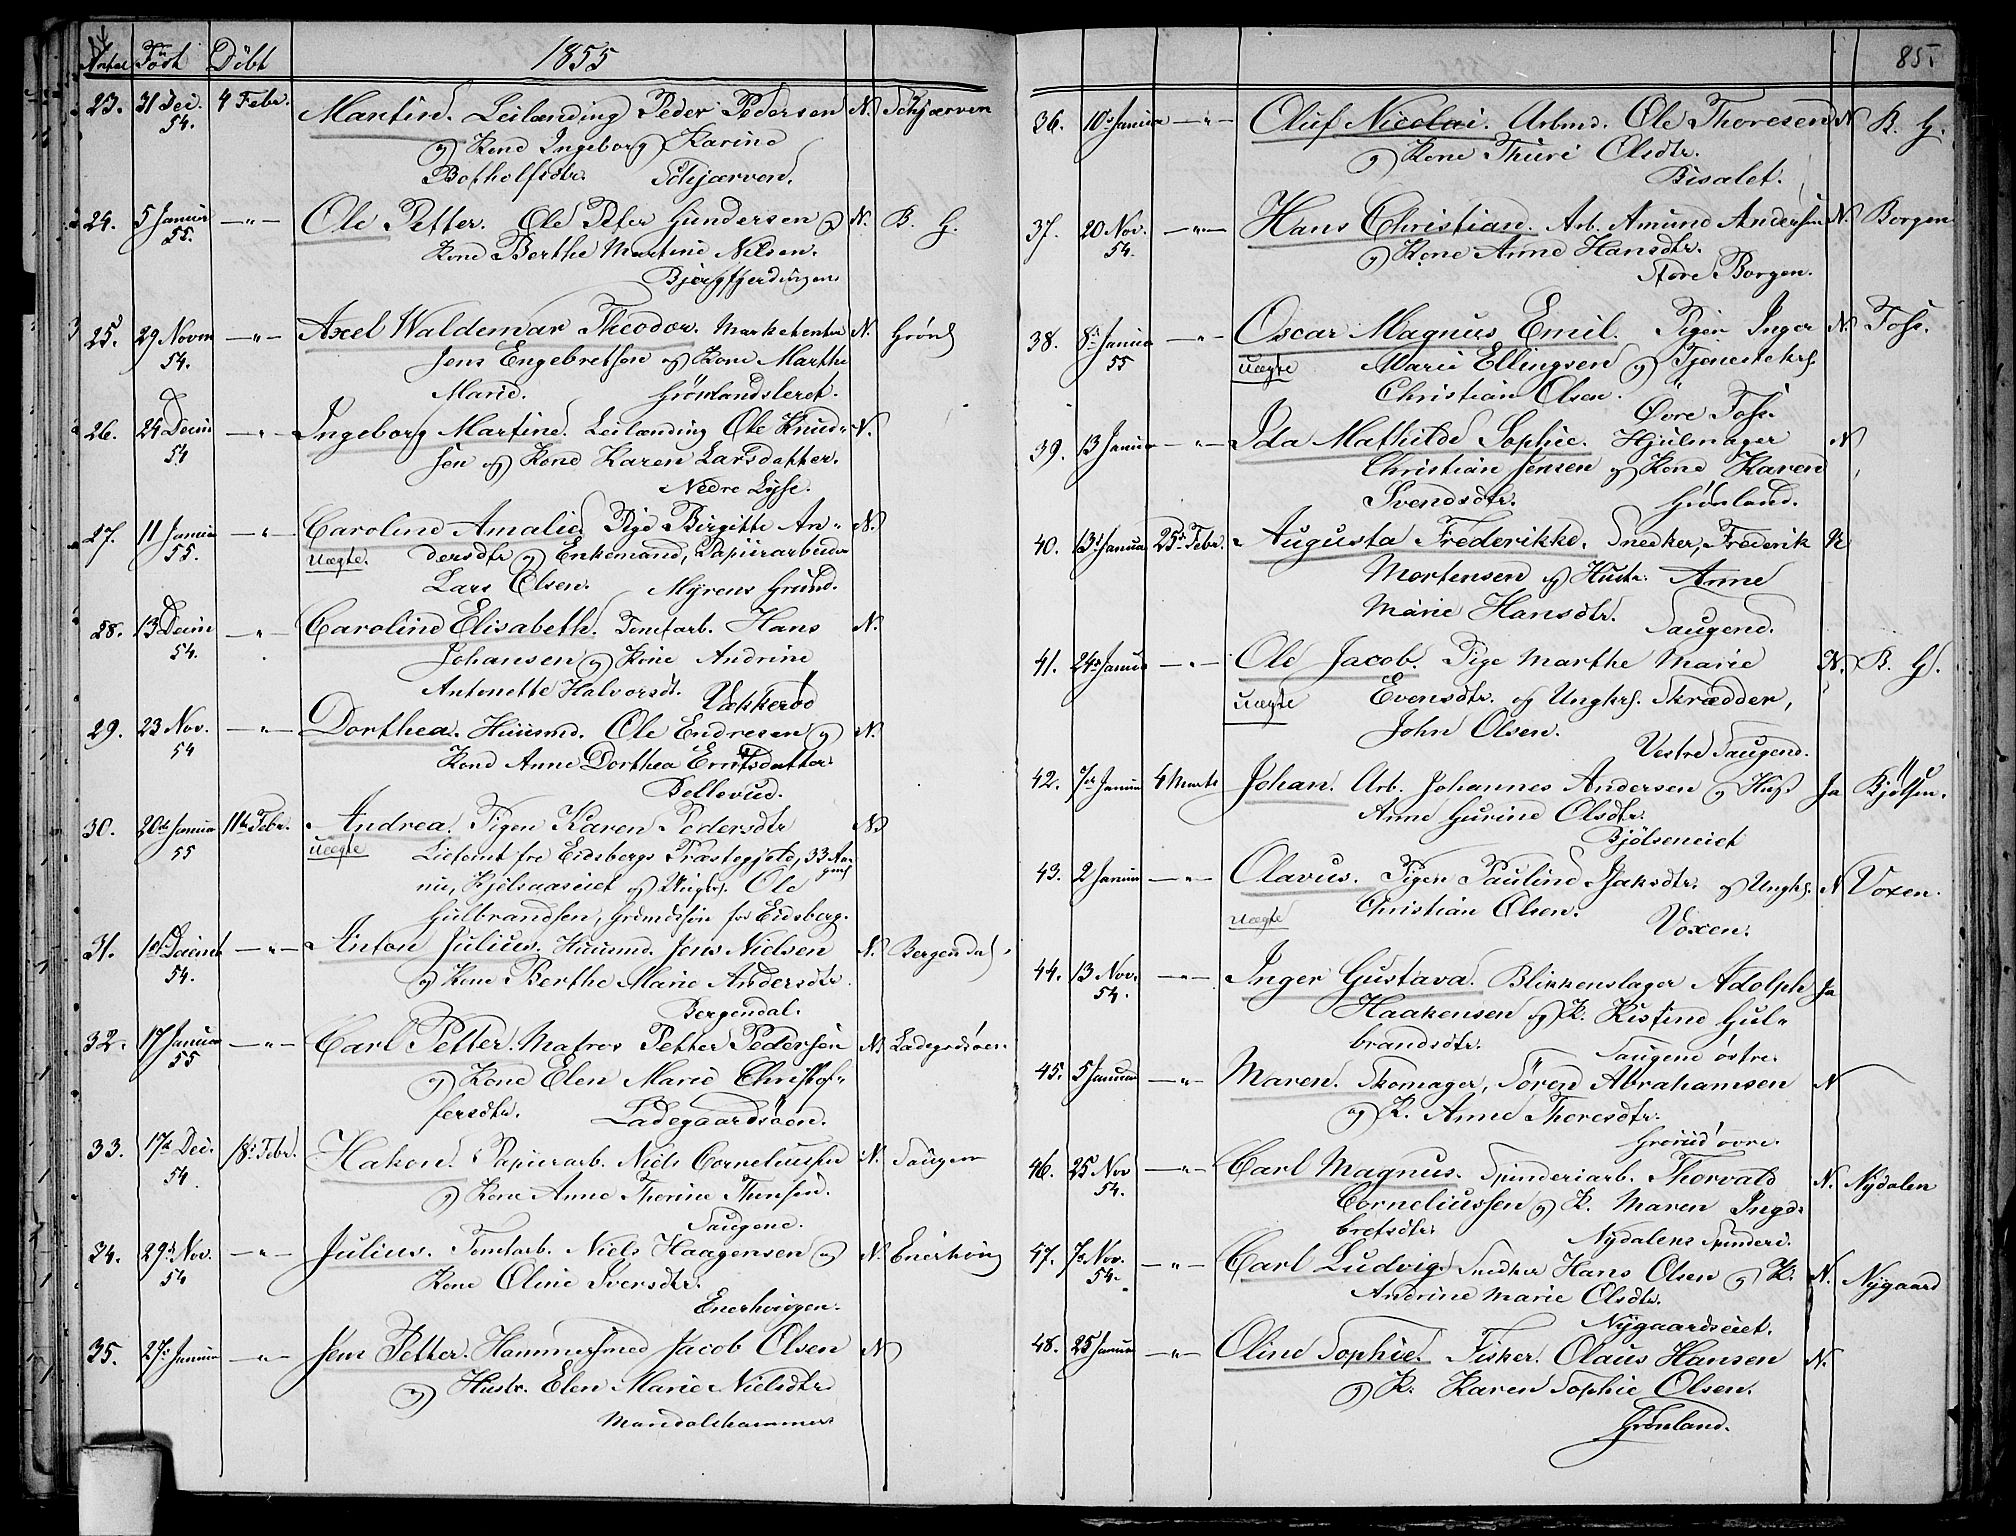 Antal Født Döbt 1855
23. 31 Dec. 54. 4 Febr. Martin. Leilænding Peder Pedersen N. Schjærven
og Kone Ingeborg Karine
Botholfsdtr. Schjærven.
24. 5 Januar 55. —"— Ole Petter. Ole Peter Gundersen og N. B. G.
Kone Berthe Martine Nilsen.
Bjergfjerdingen
25. 29 Novm 54. —"— Axel Waldemar Theodor. Marketenter N. Grønl
Jens Engebretsen og Kone Marthe
Marie. Grønlandsleret.
26. 24 Decm 54 —"— Ingeborg Martine. Leilænding Ole Knud- N.
sen og Kone Karen Larsdatter.
Nedre Lyse.
27. 11 Januar 55. —"— Caroline Amalie. Pige Birgitte An- N.
Uægte. dersdtr og Enkemand, Papirarbeider
Lars Olsen. Myrens Grund.
28. 13 Decm 54. —"— Caroline Elisabeth. Tomtarb. Hans N.
Johansen og Kone Andrine
Antonette Halvorsdt. Vækkerød
29. 23 Nov. 54 —"— Dorthea. Huusmd. Ole Endresen og N.
Kone Anne Dorthea Erntsdatter.
Bellevue.
30. 20de Januar 55 11te Febr. Andrea. Pigen Karen Pedersdtr N.
Uægte Lictemt fra Eidsbergs Præstegjeld, 33 Aar
Kjelsaaseiet og Ungkrl. Ole
Gulbrandsen, fra Eidsberg.
31. 10 Decmb 54. —"— Anton Julius. Huusmd. Jens Nielsen N. Bergendal
og Kone Berthe Marie Andersdtr.
Bergendal.
32. 17 Januar 55 —"— Carl Petter. Matros Petter Pedersen N. Ladegrdsøen.
og Kone Elen Marie Christof-
fersdtr. Ladegaardsöen.
33. 17de Dec. 54. 18. Febr. Hakon. Papirarb. Niels Corneliussen N. Saugen
og Kone Anne Thorine Thomsen.
Saugene.
34. 29. Nov. 54 —"— Julius. Tomtarb. Niels Haagensen og N. Enerhaug
Kone Oline Iversdtr.
Enerhougen.
35. 27. Januar —"— Jens Petter. Hammersmed Jacob Olsen N
og Hustr. Elen Marie Nielsdtr.
Mandalshammer
85.
36. 10. Januar —"— Oluf Nicolai. Arbmd. Ole Thoresen N B. G.
og Kone Thuri Olsdtr.
Bisalet.
37. 20 Nov. 54. —"— Hans Christian. Arb. Amund Andersen N. Borgen
og Kone Anne Hansdtr.
Store Borgen.
38. 8. Januar 55 —"— Oscar Magnus Emil. Pigen Inger N. Tofs.
Uægte Marie Ellingsen og Tjenestekrl.
Christian Olsen. Övre Tofs.
39. 13 Januar —"— Ida Mathilde Sophie. Hjulmager N
Christian Jensen og Kone Karen
Svendsdtr. Grönland.
40. 13. Januar 25. Febr. Augusta Frederikke. Snedker, Frederik N
Mortensen og Hustr. Anne
Marie Hansdtr. Saugene.
41. 24. Januar —"— Ole Jacob. Pige Marthe Marie N. B. G.
Uægte Evensdtr. og Ungkrl. Skrædder,
John Olsen.
Vestre Saugene.
42. 7de Januar 4 Marts Johan. Arb. Johannes Andersen og Hus. Ja Bjølsen.
Anne Gurine Olsdtr.
Bjölseneiet
43. 2 Januar —"— Olavus. Pigen Pauline Isaksdtr. og Ungkrl. N Voxen.
Uægte Christian Olsen. Voxen.
44. 13 Nov. 54. —"— Inger Gustava. Blikkenslager Adolph Ja
Haakensen og K. Kistine Gul-
brandsdtr. Saugene østre.
45. 5 Januar —"— Maren. Skomager, Sören Abrahamsen N
og K. Anne Thoresdtr.
Grorud övre.
46. 25 Nov 54. —"— Carl Magnus. Spinderiarb. Thorvald N. Nydalen
Corneliussen og K. Maren Inge-
bretsdtr. Nydalens Spinderi.
47. 7de Nov. 54. —"— Carl Ludvig. Snedker Hans Olsen og K. N. Nygaard
Andrine Marie Olsdtr.
Nygaardseiet.
48. 25 Januar —"— Oline Sophie. Fisker. Olaus Hansen N.
og K. Karen Sophie Olsen.
Grönland.